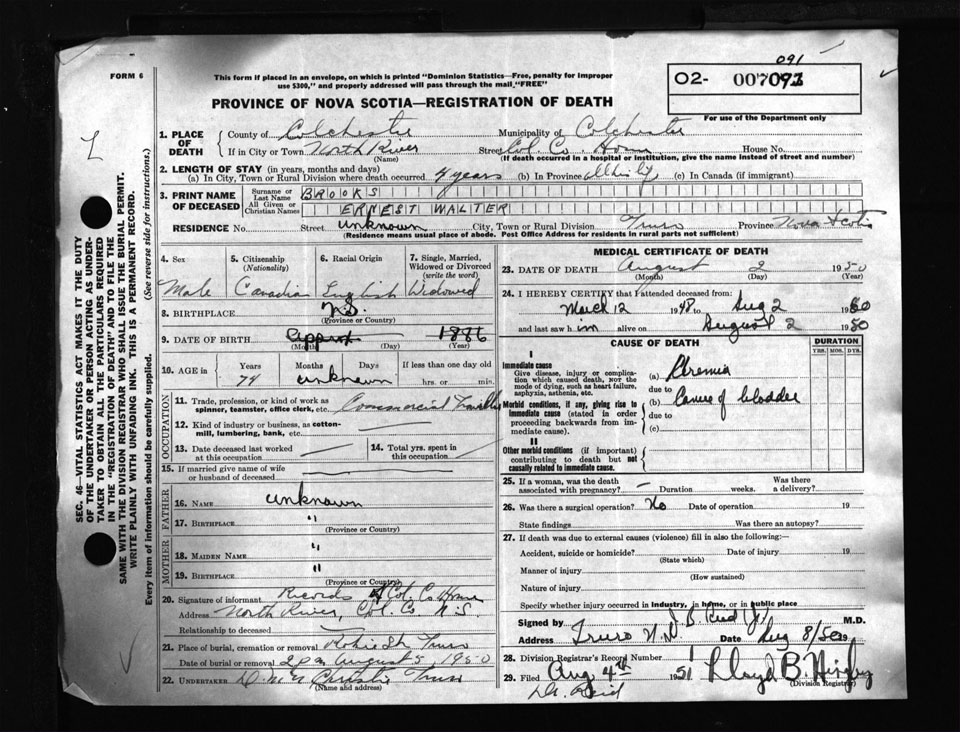 091
FORM 6
This form if placed in an envelope, on which is printed "Dominion Statistics—Free, penalty for improper
use $300," and properly addressed will pass through the mail, "FREE"
O2- 007093
For use of the Department only
PROVINCE OF NOVA SCOTIA—REGISTRATION OF DEATH
1. PLACE OF DEATH
County of Colchester Municipality of Colchester
If in City or Town North River Street Col. Co. Home House No.
(Name) (If death occurred in a hospital or institution, give the name instead of street and number)
2. LENGTH OF STAY (in years, months and days)
(a) In City, Town or Rural Division where death occurred 4 years (b) In Province (c) In Canada (if immigrant)
3. PRINT NAME OF DECEASED
Surname or Last Name BROOKS
All Given or Christian Names ERNEST WALTER
RESIDENCE No. Street unknown City, Town or Rural Division Truro Province Nova Scotia
(Residence means usual place of abode. Post Office Address for residents in rural parts not sufficient)
4. Sex 5. Citizenship (Nationality) 6. Racial Origin 7. Single, Married, Widowed or Divorced (write the word)
Male Canadian English Widowed
8. BIRTHPLACE N.S.
(Province or Country)
9. DATE OF BIRTH 1876
(Month) (Day) (Year)
10. AGE in Years Months Days If less than one day old
74 unknown hrs. or min.
OCCUPATION
11. Trade, profession, or kind of work as
spinner, teamster, office clerk, etc. Commercial Traveller
12. Kind of industry or business, as cotton-
mill, lumbering, bank, etc.
13. Date deceased last worked
at this occupation
14. Total yrs. spent in
this occupation
15. If married give name of wife
or husband of deceased
FATHER
16. NAME unknown
17. BIRTHPLACE "
(Province or Country)
MOTHER
18. MAIDEN NAME "
19. BIRTHPLACE "
(Province or Country)
20. Signature of informant Records Col. Co. Home
Address North River, Col. Co. N.S
Relationship to deceased
21. Place of burial, cremation or removal Robie St. Truro
Date of burial or removal 2 pm August 5 1950
22. UNDERTAKER Christie Truro
(Name and address)
MEDICAL CERTIFICATE OF DEATH
23. DATE OF DEATH August 2 1950
(Month) (Day) (Year)
24. I HEREBY CERTIFY that I attended deceased from:
March 12 1948 to Aug 2 1950
and last saw him alive on August 2 1950
CAUSE OF DEATH DURATION
YRS. MOS. DYS.
I
Immediate cause
Give disease, injury or complica-
tion which caused death, NOT the
mode of dying, such as heart failure,
asphyxia, asthenia, etc.
(a) Uremia
due to
Morbid conditions, if any, giving rise to
immediate cause (stated in order
proceeding backwards from im-
mediate cause).
(b) Cancer of bladder
due to
(c)
II
Other morbid conditions (if important)
contributing to death but not
causally related to immediate cause.
25. If a woman, was the death
associated with pregnancy? — Duration weeks. Was there
a delivery?
26. Was there a surgical operation? No Date of operation 19
State findings Was there an autopsy?
27. If death was due to external causes (violence) fill in also the following:—
Accident, suicide or homicide? Date of injury 19
(State which)
Manner of injury
(How sustained)
Nature of injury
Specify whether injury occurred in industry, in home, or in public place
Signed by J. B. Reid (Jr) M.D.
Address Truro N.S. Date Aug 8/50 19
28. Division Registrar's Record Number 1
29. Filed Aug 4th 1951 Lloyd B.
(Division Registrar)
Dr. Reid
SEC. 46—VITAL STATISTICS ACT MAKES IT THE DUTY
OF THE UNDERTAKER OR PERSON ACTING AS UNDER-
TAKER TO OBTAIN ALL THE PARTICULARS REQUIRED
IN THE "REGISTRATION OF DEATH" AND TO FILE THE
SAME WITH THE DIVISION REGISTRAR WHO SHALL ISSUE THE BURIAL PERMIT.
WRITE PLAINLY WITH UNFADING INK. THIS IS A PERMANENT RECORD.
Every item of information should be carefully supplied. (See reverse side for instructions.)